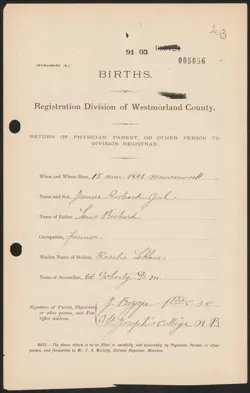 91 03
005056
Schedule A.
BIRTHS.
Registration Division of Westmorland County.
RETURN OF PHYSICIAN, PARENT, OR OTHER PERSON TO
DIVISION REGISTRAR.
When and Where Born, 18 1891
Name and Sex, Richard Girl
Name of Father, Louis Richard
Occupation, Farmer
Maiden Name of Mother, Rosalie Leblanc
Name of Accoucher, Ed Doherty D.M.
Signature of Parent, Physician
or other person, and Post
Office Address.
St Joseph's College N.B.
NOTE.—The above return is to be filled in carefully and accurately by Physician, Parent, or other
person, and forwarded to Mr. Division Registrar, Moncton.